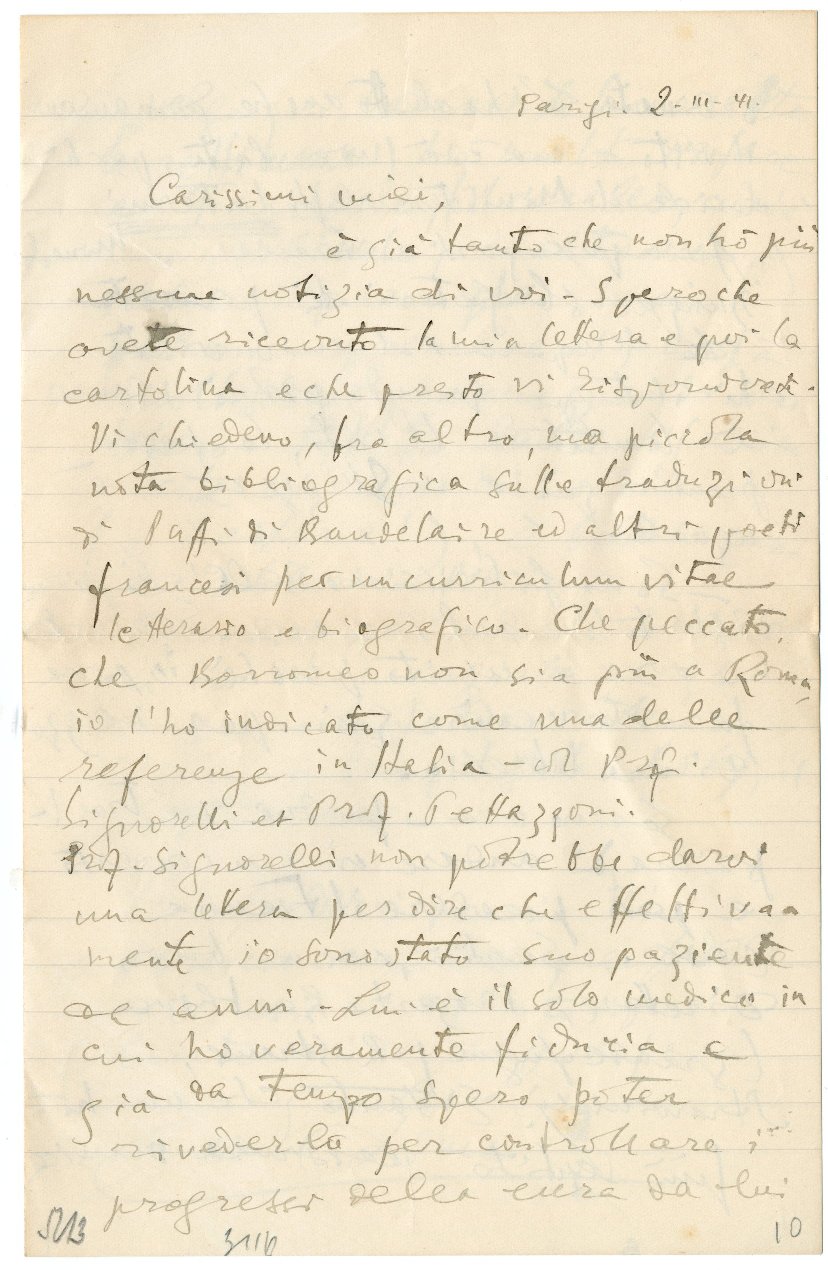 Parigi. 2-III-41.
Carissimi miei,
è già tanto che non hò più
nessuna notizia di voi - Spero che
avete ricevuto la mia lettera e poi la
cartolina e che presto vi risponderete.
Vi chiedevo, fra altro, una piccola
nota bibliografica sulle traduzioni
di Puffi di Baudelaire ed altri poeti
francesi per un curriculum vitae
letterario e biografico. Che peccato,
che Borromeo non sia più a Roma,
io l'ho indicato come una delle
referenze in Italia - col Prof.
Signorelli et Prof. Pettazzoni.
Prof. Signorelli non potrebbe darvi
una lettera per dire che effettivaa
mente io sono stato suo paziente
de anni - Lui è il solo medico in
cui ho veramente fiducia e
già da tempo spero poter
rivederlo per controllare i
progressi della cura da lui
5213
3116
10